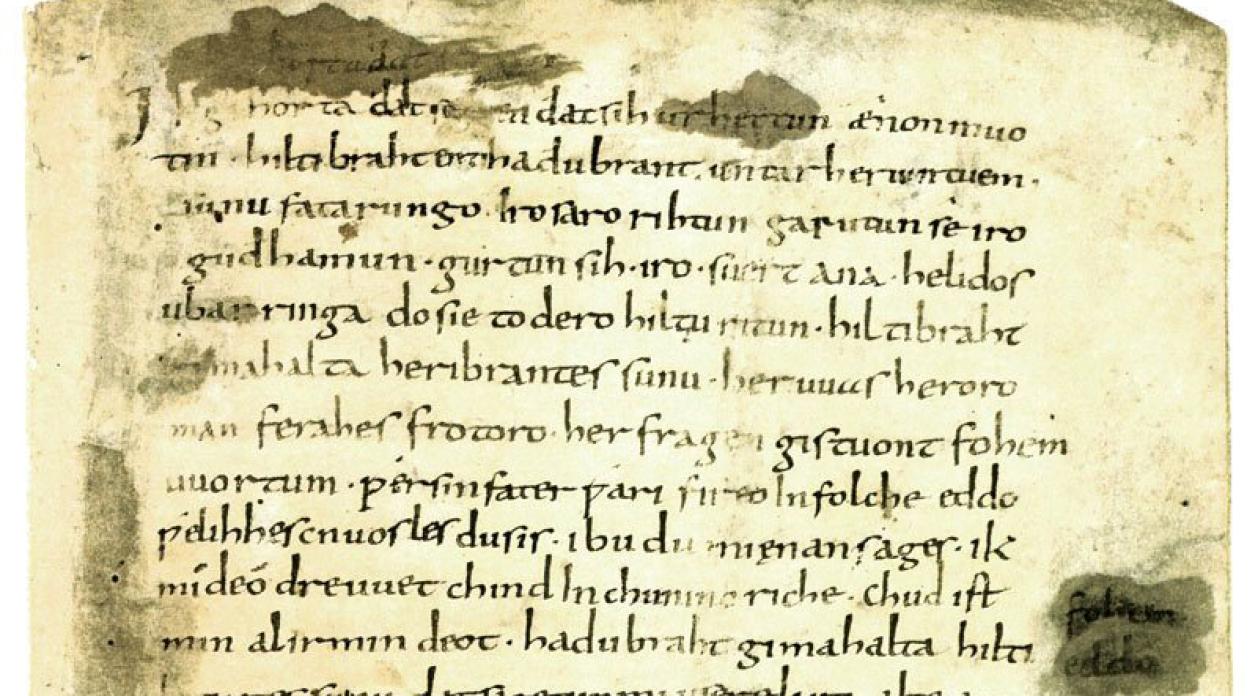 Ik gihorta dat seggen dat sih urhettun ænon muo
tin · hiltibraht enti hadubrant · untar heriun tuem ·
sunu fatarungo · iro saro rihtun garutun se iro
gudhamun · gurtun sih · iro · suert ana · helidos
ubar ringa do sie to dero hiltu ritun · hiltibraht
gimahalta heribrantes sunu · her uuas heroro
man ferahes frotoro · her fragen gistuont fohem
uuortum · ƿer sin fater ƿari fireo In folche eddo
ƿelihhes cnuosles du sis · ibu du mi ęnan sages · ik
mi de odre uuet chind In chunincriche · Chud ist
min al irmindeot · hadubraht gimahalta hilti
fohem
eddo